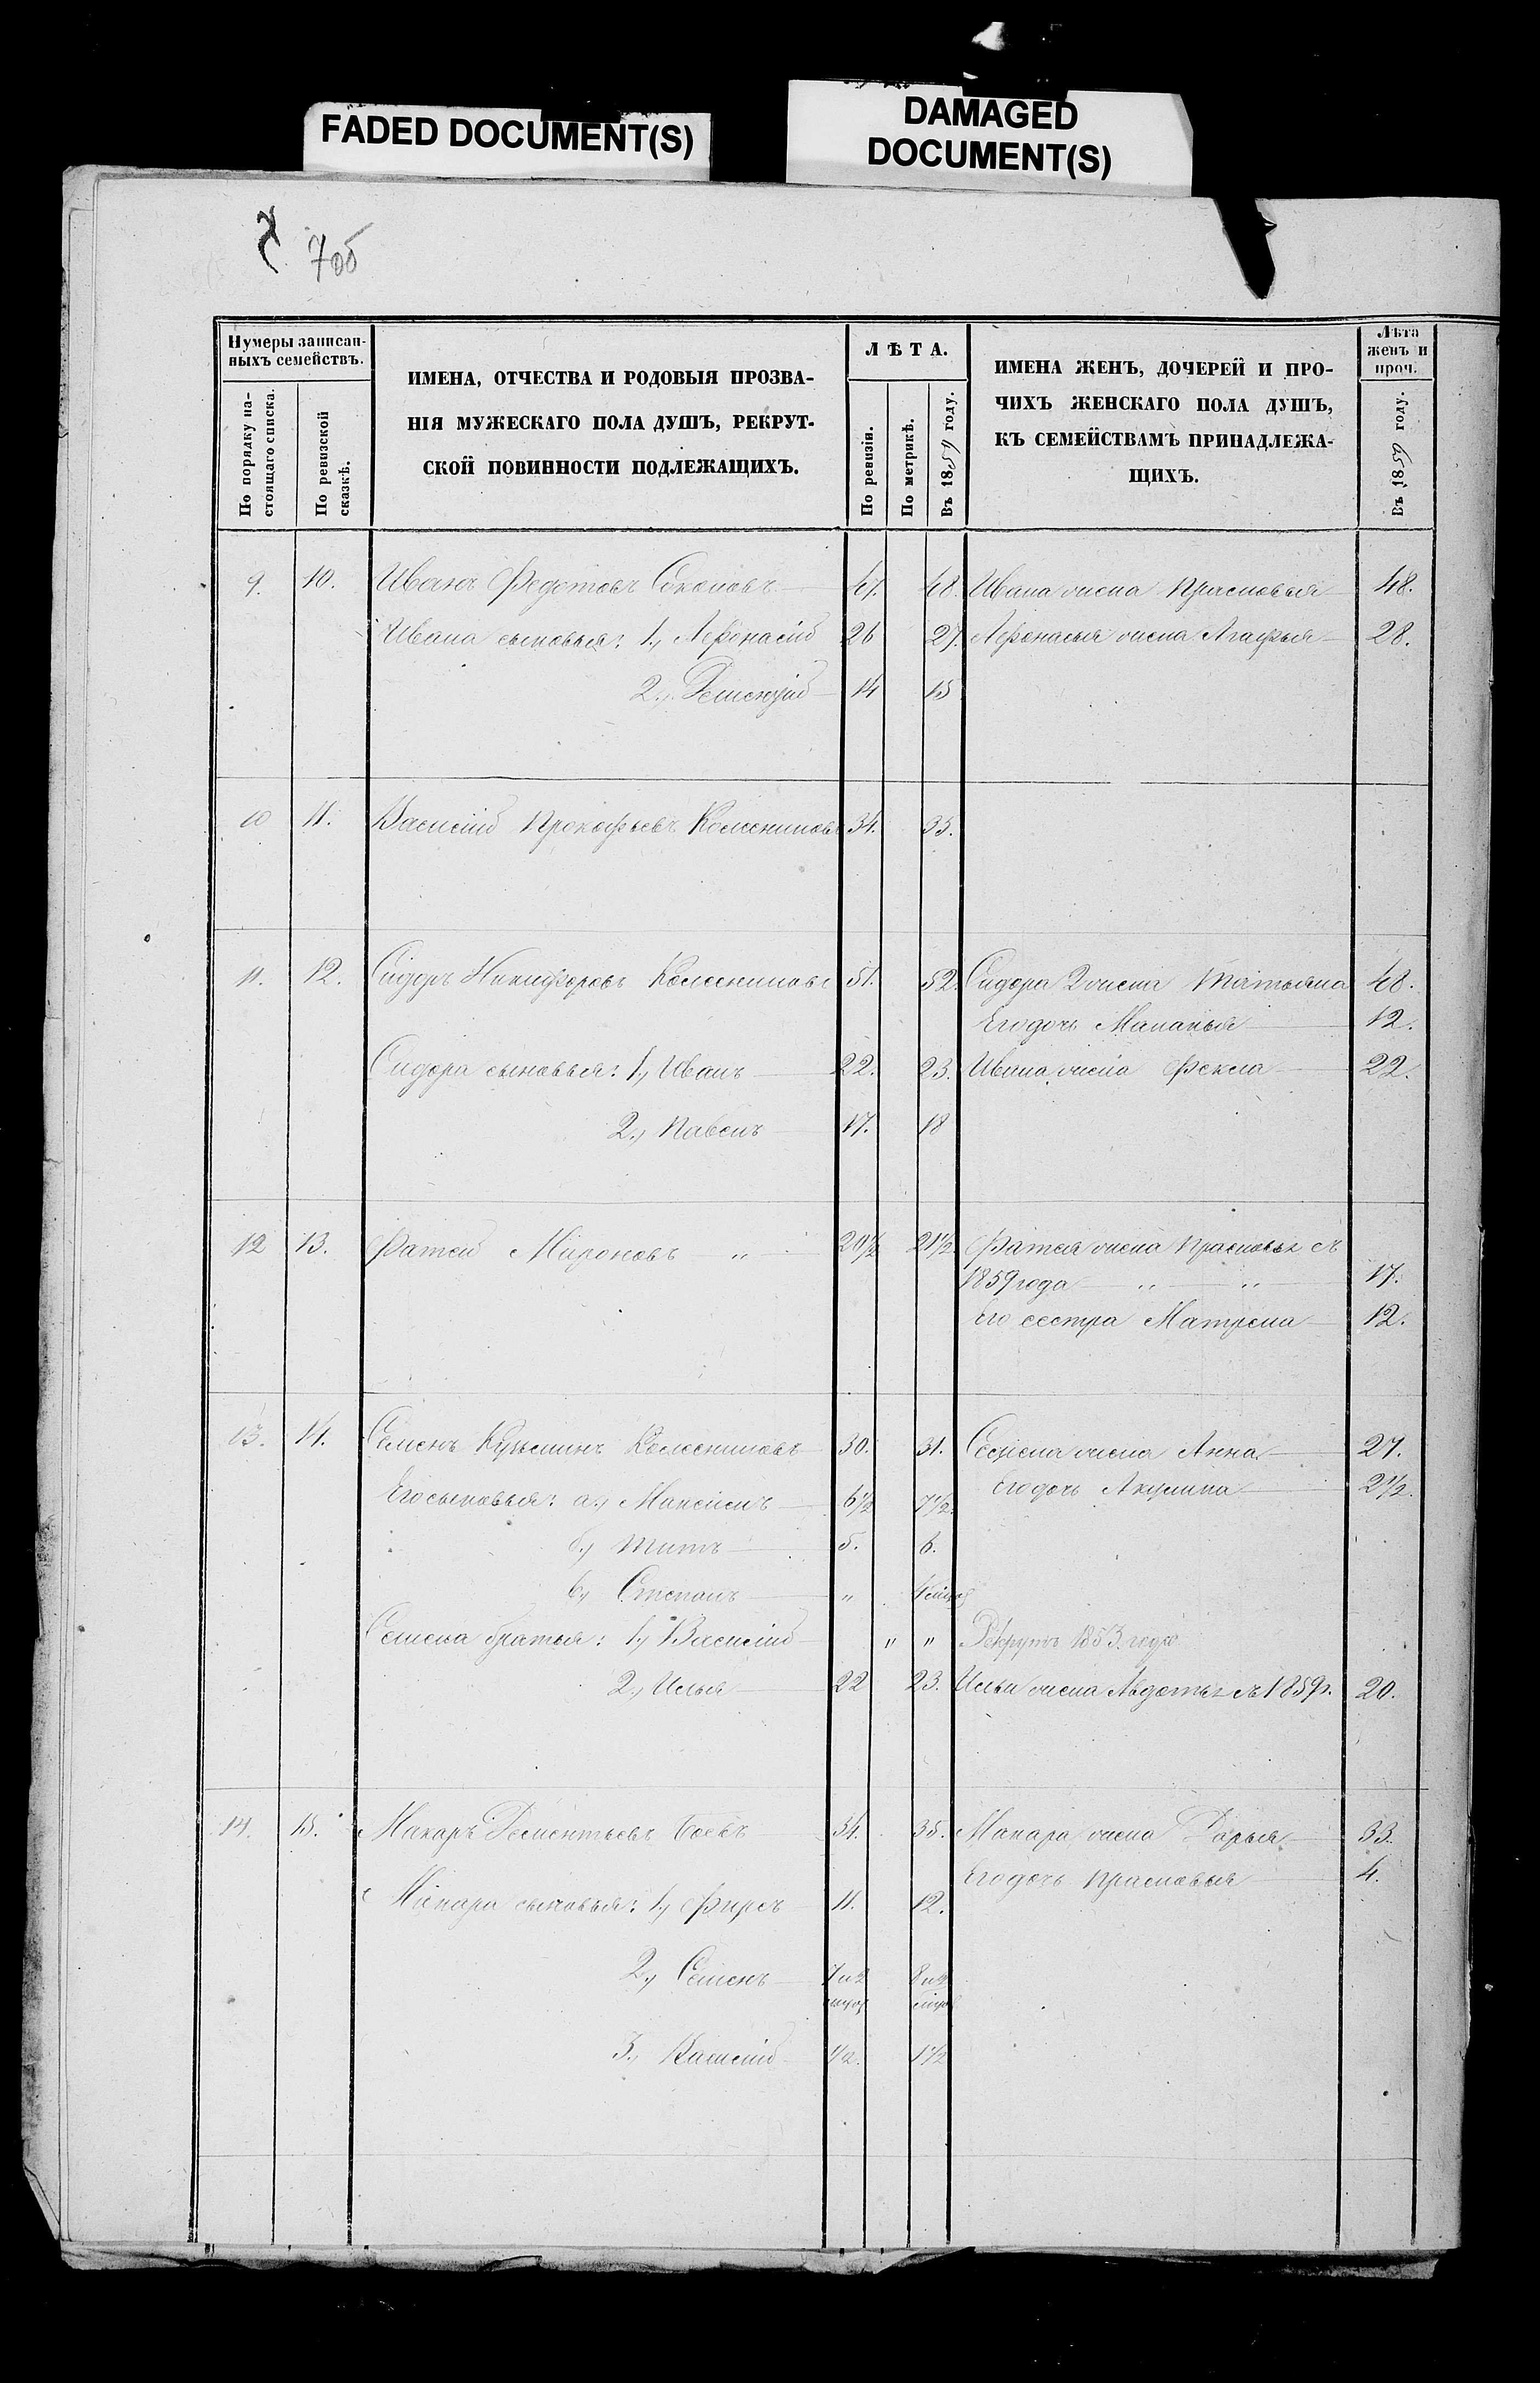 FADED DOCUMENT(S)
DAMAGED
DOCUMENT(S)
700
Нумеры записан-
ныхъ семействъ.
По порядку на-
стоящаго списка.
По ревизской
сказкѣ.
ИМЕНА, ОТЧЕСТВА И РОДОВЫЯ ПРОЗВА-
НІЯ МУЖЕСКАГО ПОЛА ДУШЪ, РЕКРУТ-
СКОЙ ПОВИННОСТИ ПОДЛЕЖАЩИХЪ.
ЛѢТА.
По ревизіи.
По метрикѣ.
Въ 1859 году.
ИМЕНА ЖЕНЪ, ДОЧЕРЕЙ И ПРО-
ЧИХЪ ЖЕНСКАГО ПОЛА ДУШЪ,
КЪ СЕМЕЙСТВАМЪ ПРИНАДЛЕЖА-
ЩИХЪ.
Лѣта
женъ и
проч.
Въ 1859 году.
9. 10. Иванъ Федотовъ 47. 48. Ивана жена Прасковья 48.
Ивана сыновья: 1., Афонасій 26 27. Афонасья жена Агафья 28.
2., 14 15
10 11. Василій Прокофьевъ Колесниковъ 34. 35.
11. 12. Сидоръ Никифоровъ Колесниковъ 51. 52. Сидора 2 жена Татьяна 48.
Его дочь Маланья 12.
Сидора сыновья: 1., Иванъ 22. 23. Ивана жена Фекла 22.
2., Павелъ 17. 18
12 13. Фатей Мироновъ " 20½ 21½. Фатея жена Прасковья съ
1859 года " " 17.
Его сестра Матрена 12.
13. 14. Семенъ Кузьминъ Колесниковъ 30. 31. Семена жена Анна 27.
Его сыновья: а., Максимъ 6½ 7½. Его дочь Акулина 2½.
б., Титъ 5. 6.
в., Степанъ "
Семена братья: 1., Василій " " Рекрутъ 1853 года
2., Илья 22 23. Ильи жена Авдотья съ 1859г. 20.
14. 15. Макаръ Дементьевъ Боевъ 34. 35. Макара жена Дарья 33.
Его дочь Прасковья 4.
Макара сыновья: 1., Фирсъ 11. 12.
2., Семенъ 7 и 2 8 и 2
3., ½. 1½